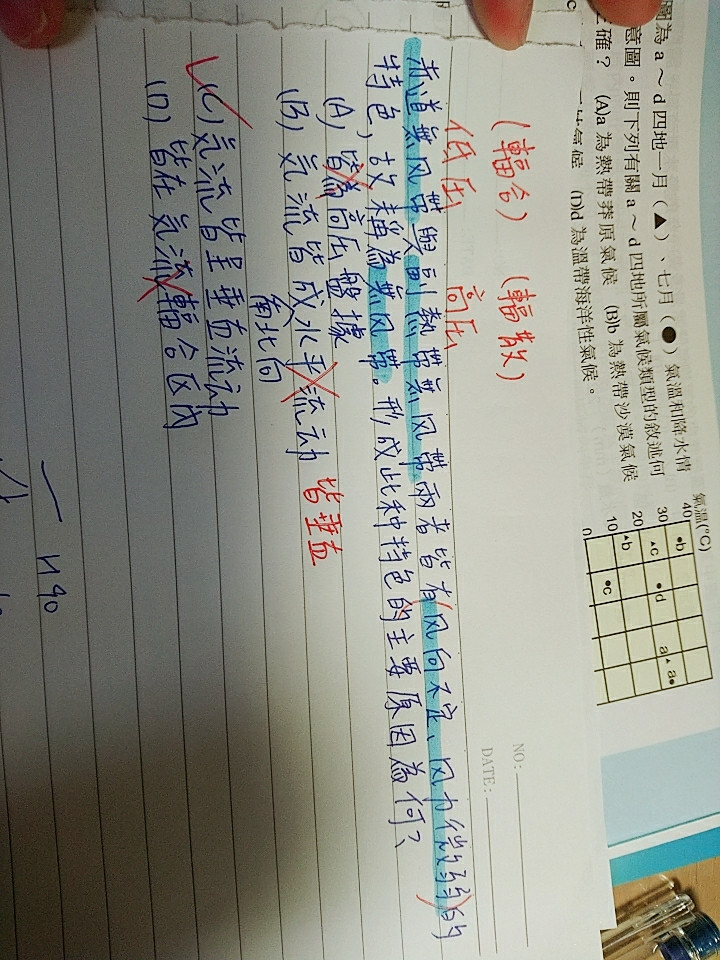 圖為 a～d 四地一月（▲）、七月（●）氣溫和降水情
意圖。則下列有關 a～d 四地所屬氣候類型的敘述何
確？ (A)a 為熱帶莽原氣候 (B)b 為熱帶沙漠氣候
氣候 (D)d 為溫帶海洋性氣候。
氣溫(°C)
40
30
20
10
0
●b
▲c
▲b
●d
●c
a▲
a●
NO:
DATE:
(輻合) (輻散)
低压 高压
赤道無风帶與副熱帶無风帶兩者皆有风向不定、风力微弱的
特色，故稱為無风帶。形成此种特色的主要原因為何？
(A) 皆為高压盤據
(B) 気流皆成水平流动 皆垂直
南北向
(C) 気流皆呈垂直流动
(D) 皆在気流輻合区内